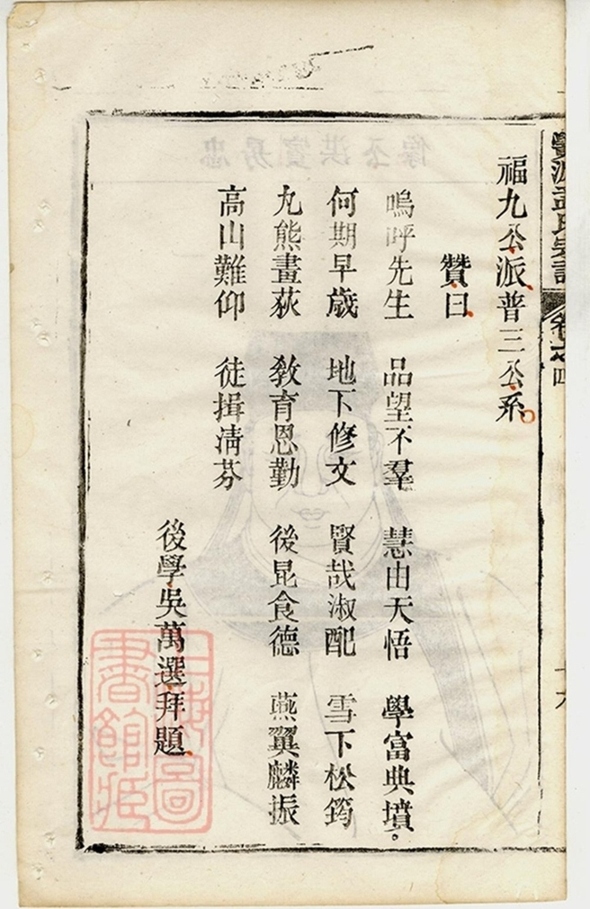 福九公派普三公系
贊曰
嗚呼先生 品望不羣 慧由天悟 學富典墳。
何期早歲 地下修文 賢哉淑配 雪下松筠
丸熊畫荻 教育恩勤 後昆食德 燕翼麟振
高山難仰 徒揖清芬
後學吳萬選拜題
上海圖書館藏